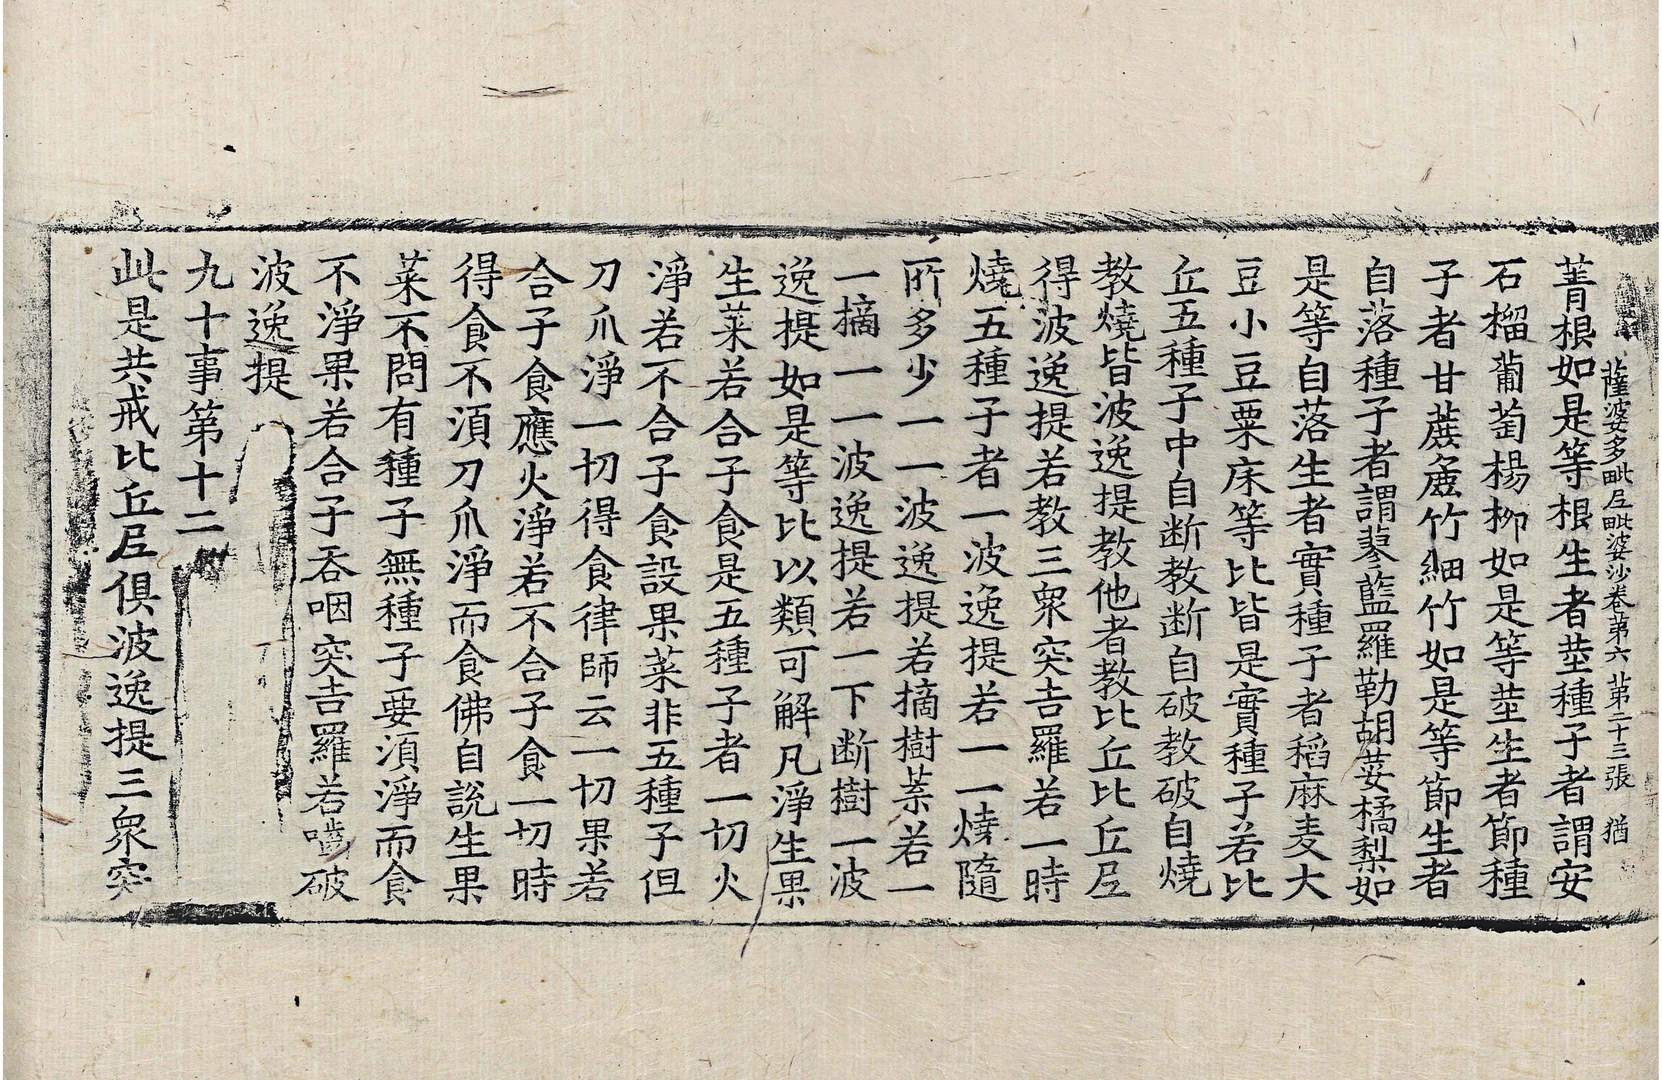 薩婆多毗尼毗婆沙卷第六 苐二十三張 猶
菁根如是等根生者莖種子者謂安
石榴蔔萄楊柳如是等莖生者節種
子者甘蔗麁竹細竹如是等節生者
自落種子者謂蓼藍羅勒胡荽橘梨如
是等自落生者實種子者稻麻麦大
豆小豆粟床等比皆是實種子若比
丘五種子中自断教断自破教破自燒
教燒皆波逸提教他者教比丘比丘尼
得波逸提若教三衆突吉羅若一時
燒五種子者一波逸提若一一燒隨
所多少一一波逸提若摘樹葉若一
一摘一一波逸提若一下断樹一波
逸提如是等比以類可解凡淨生果
生菜若合子食是五種子者一切火
淨若不合子食設果菜非五種子但
刀爪淨一切得食律師云一切果若
合子食應火淨若不合子食一切時
得食不湏刀爪淨而食佛自說生果
菜不問有種子無種子要湏淨而食
不淨果若合子吞咽突吉羅若嚙破
波逸提
九十事第十二
此是共戒比丘尼俱波逸提三衆突